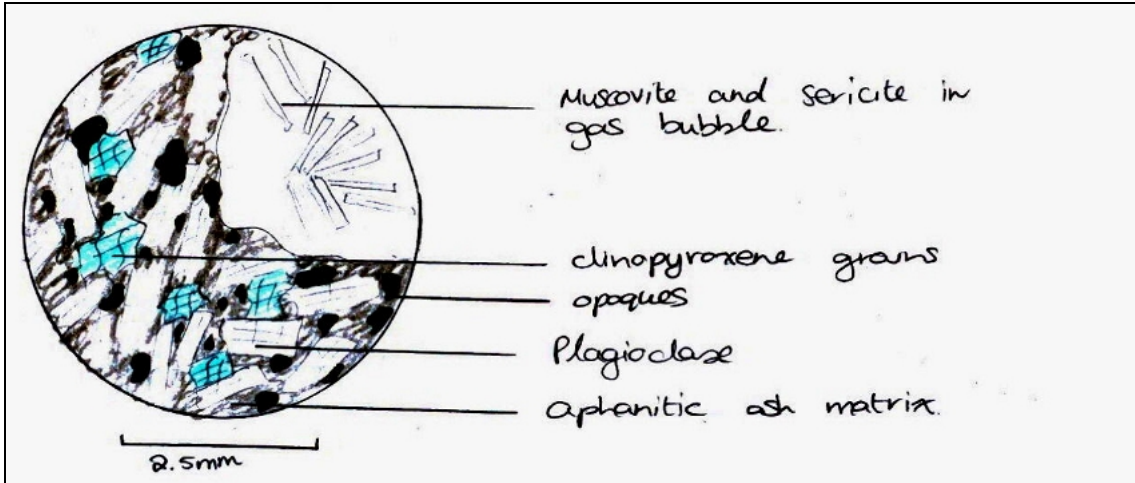 Muscovite and sericite in
gas bubble.
clinopyroxene grains
opaques
Plagioclase
aphanitic ash matrix.
2.5mm